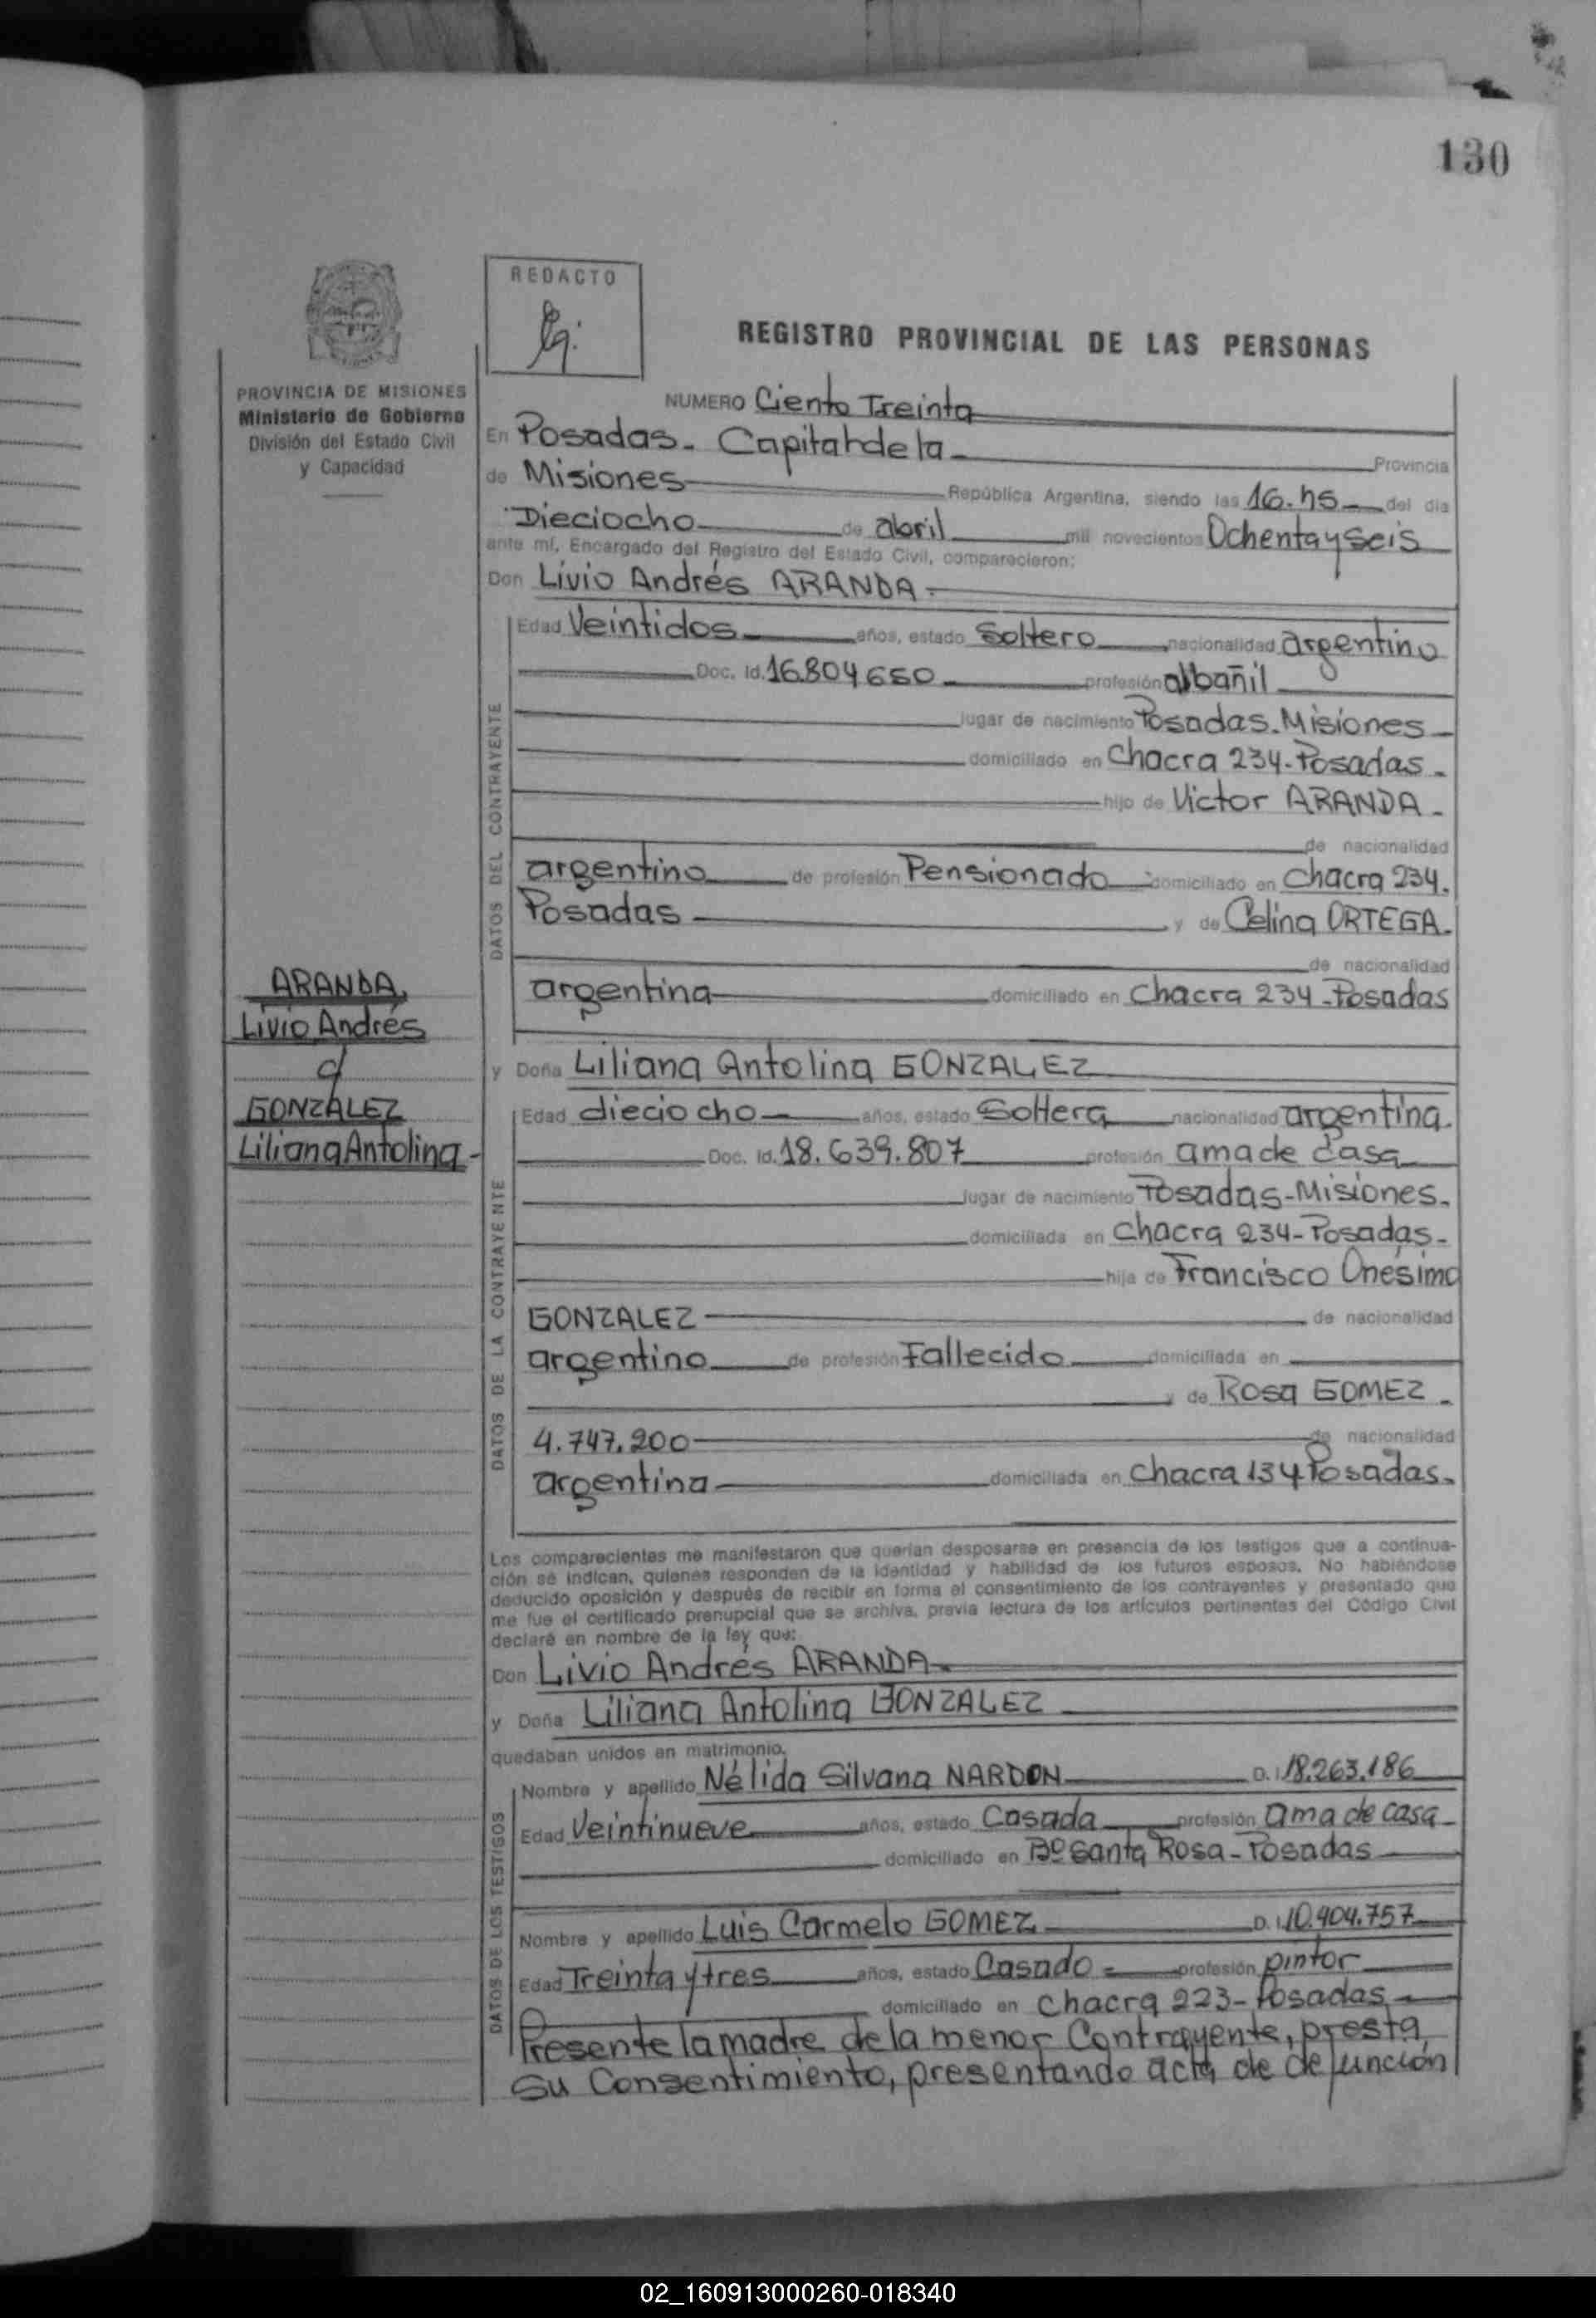 130
REDACTO
REGISTRO PROVINCIAL DE LAS PERSONAS
PROVINCIA DE MISIONES
Ministerio de Gobierno
División del Estado Civil
y Capacidad
NUMERO Ciento Treinta
En Posadas. Capital de la Provincia
de Misiones República Argentina, siendo las 16.hs del día
Dieciocho de abril mil novecientos Ochenta y Seis
ante mí, Encargado del Registro del Estado Civil, comparecieron:
Don Livio Andrés ARANDA.
DATOS DEL CONTRAYENTE
Edad Veintidos años, estado Soltero nacionalidad argentino
Doc. Id. 16.804650 profesión albañil
lugar de nacimiento Posadas.Misiones
domiciliado en Chacra 234-Posadas.
hijo de Victor ARANDA.
de nacionalidad
argentino de profesión Pensionado domiciliado en Chacra 234.
Posadas y de Celina ORTEGA.
de nacionalidad
argentina domiciliado en Chacra 234-Posadas
ARANDA,
Livio Andrés
c/
GONZALEZ
Liliana Antolina-
y Doña Liliana Antolina GONZALEZ
DATOS DE LA CONTRAYENTE
Edad dieciocho años, estado Soltera nacionalidad argentina.
Doc. Id. 18.639.807 profesión ama de Casa
lugar de nacimiento Posadas-Misiones.
domiciliada en Chacra 234-Posadas.
hija de Francisco Onésimo
GONZALEZ de nacionalidad
argentino de profesión Fallecido domiciliada en
y de Rosa GOMEZ.
4.747.200 de nacionalidad
argentina domiciliada en Chacra 134 Posadas.
Los comparecientes me manifestaron que querían desposarse en presencia de los testigos que a continua-
ción se indican, quienes responden de la identidad y habilidad de los futuros esposos. No habiéndose
deducido oposición y después de recibir en forma el consentimiento de los contrayentes y presentado que
me fue el certificado prenupcial que se archiva, previa lectura de los artículos pertinentes del Código Civil
declaré en nombre de la ley que:
Don Livio Andrés ARANDA
y Doña Liliana Antolina GONZALEZ
quedaban unidos en matrimonio.
DATOS DE LOS TESTIGOS
Nombre y apellido Nélida Silvana NARDON D. I. 18.263.186
Edad Veintinueve años, estado Casada profesión ama de casa
domiciliado en Bº Santa Rosa-Posadas
Nombre y apellido Luis Carmelo GOMEZ D. I. 10.904.757
Edad Treinta y tres años, estado Casado profesión pintor
domiciliado en Chacra 223-Posadas
Presente la madre de la menor Contrayente, presta
su Consentimiento, presentando acta de defunción
02_160913000260-018340